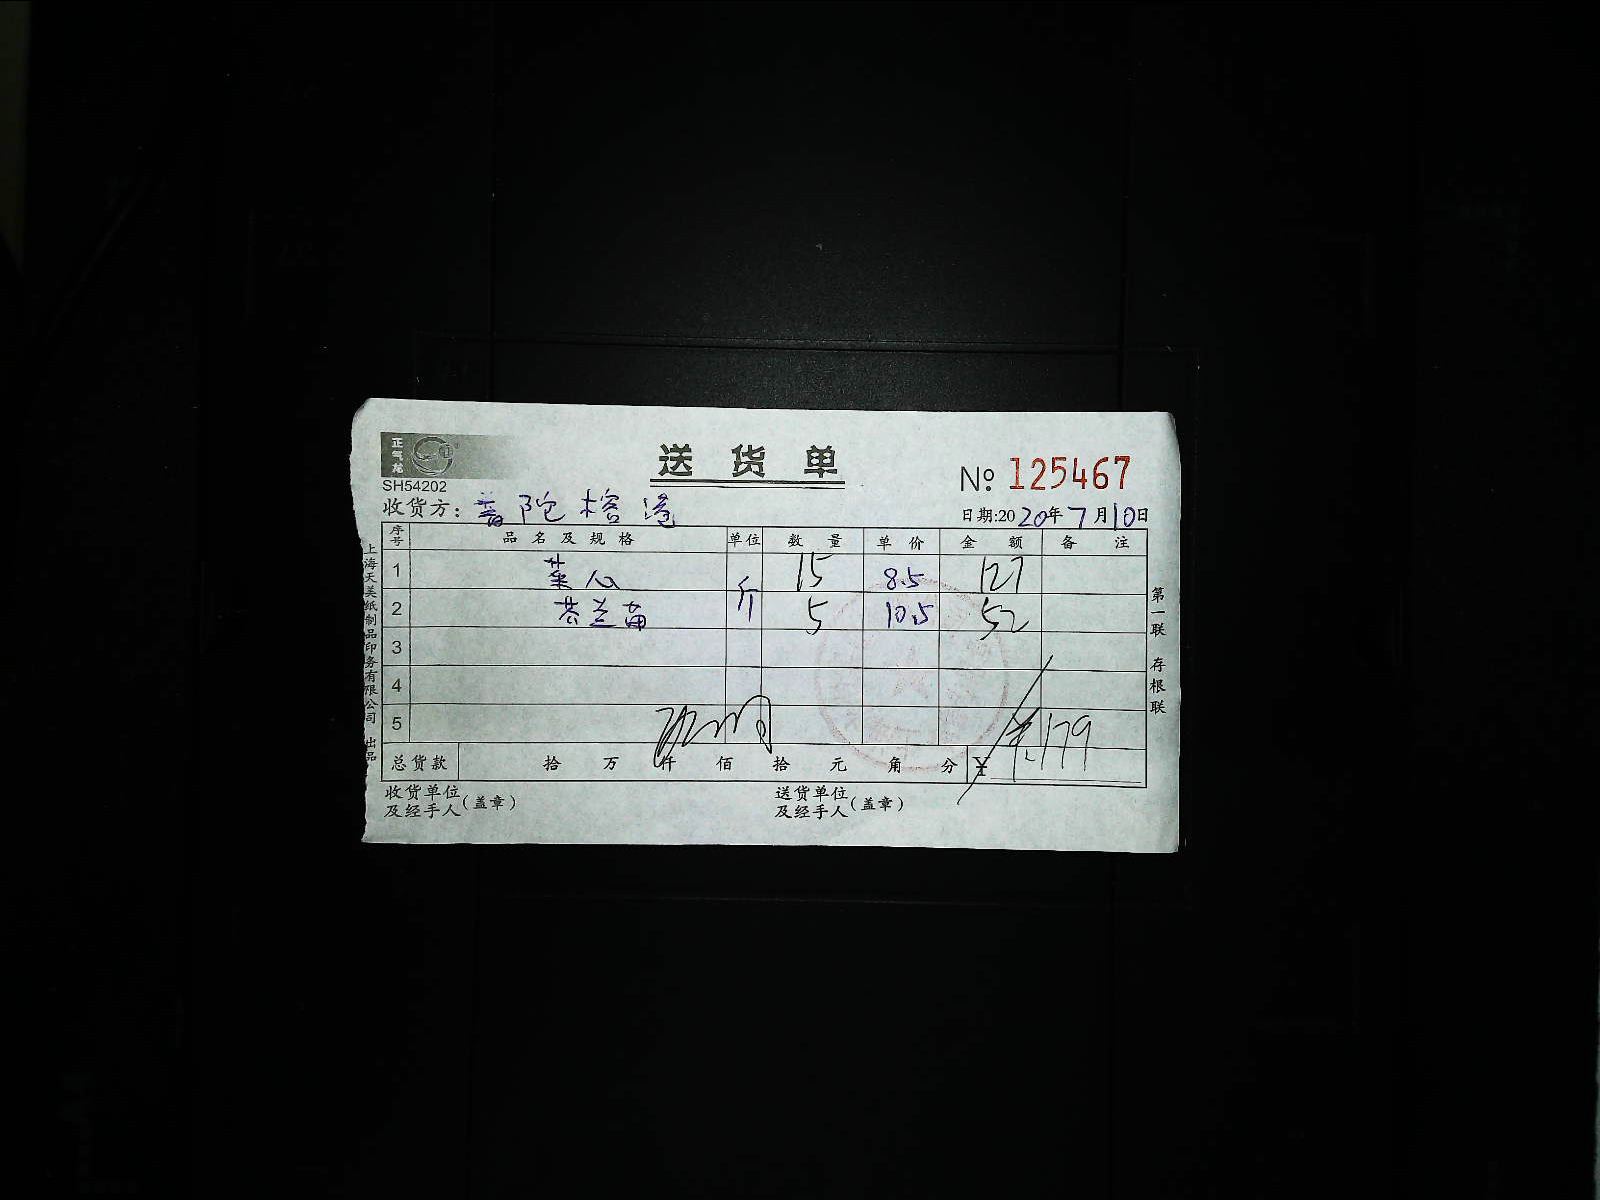 正气龙
送货单
SH54202
№ 125467
收货方：普陀榕港
日期:2020年7月10日
序号 品名及规格 单位 数量 单价 金额 备注
1 菜心 斤 15 8.5 127
2 芥兰苗 斤 5 10.5 52
3
4
5
总货款 拾 万 仟 佰 拾 元 角 分 ¥ 179
收货单位
及经手人(盖章)
送货单位
及经手人(盖章)
上海天美纸制品印务有限公司 出品
第一联 存根联